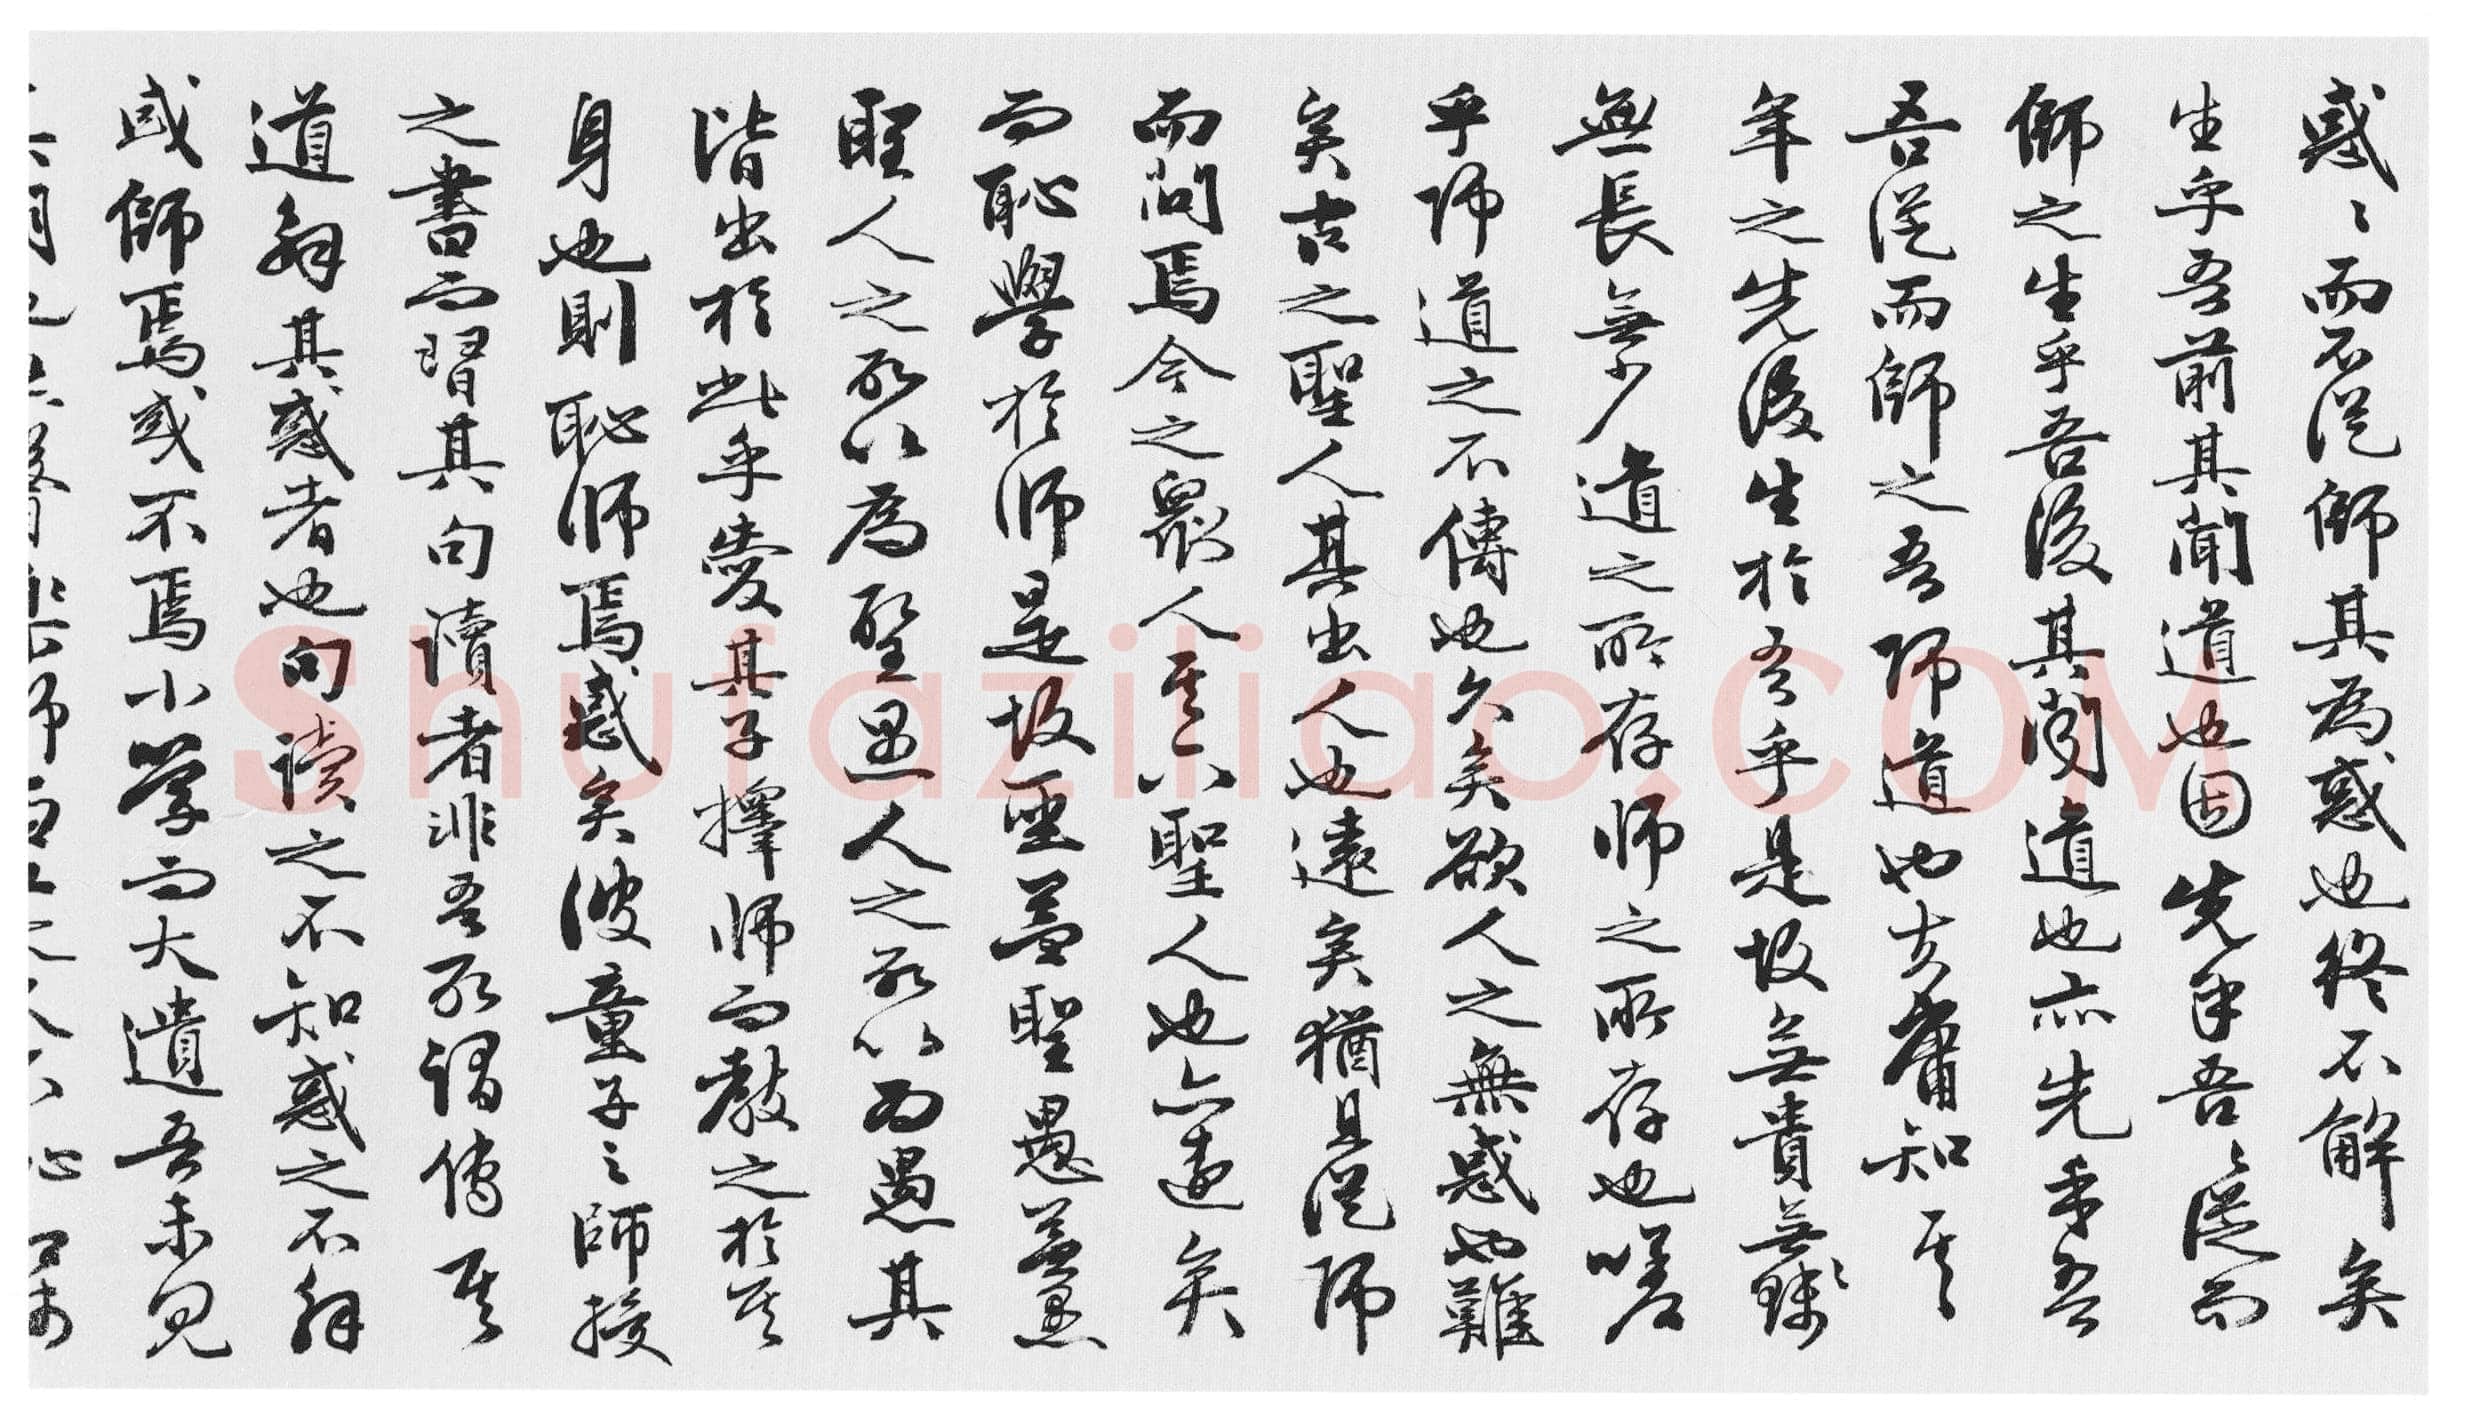 惑〻而不從師其為惑也終不解矣
生乎吾前其聞道也固先乎吾〻從而
師之生乎吾後其聞道也亦先乎吾
吾從而師之吾師道也夫庸知其
年之先後生於吾乎是故無貴無賤
無長無少道之所存師之所存也嗟
乎師道之不傳也久矣欲人之無惑也難
矣古之聖人其出人也遠矣猶且從師
而問焉今之眾人其下聖人也亦遠矣
而恥學於師是故聖益聖愚益愚
聖人之所以為聖愚人之所以為愚其
皆出於此乎愛其子擇師而教之於其
身也則恥師焉惑矣彼童子之師授
之書而習其句讀者非吾所謂傳其
道解其惑者也句讀之不知惑之不解
或師焉或不焉小學而大遺吾未見
Shufaziliao.com